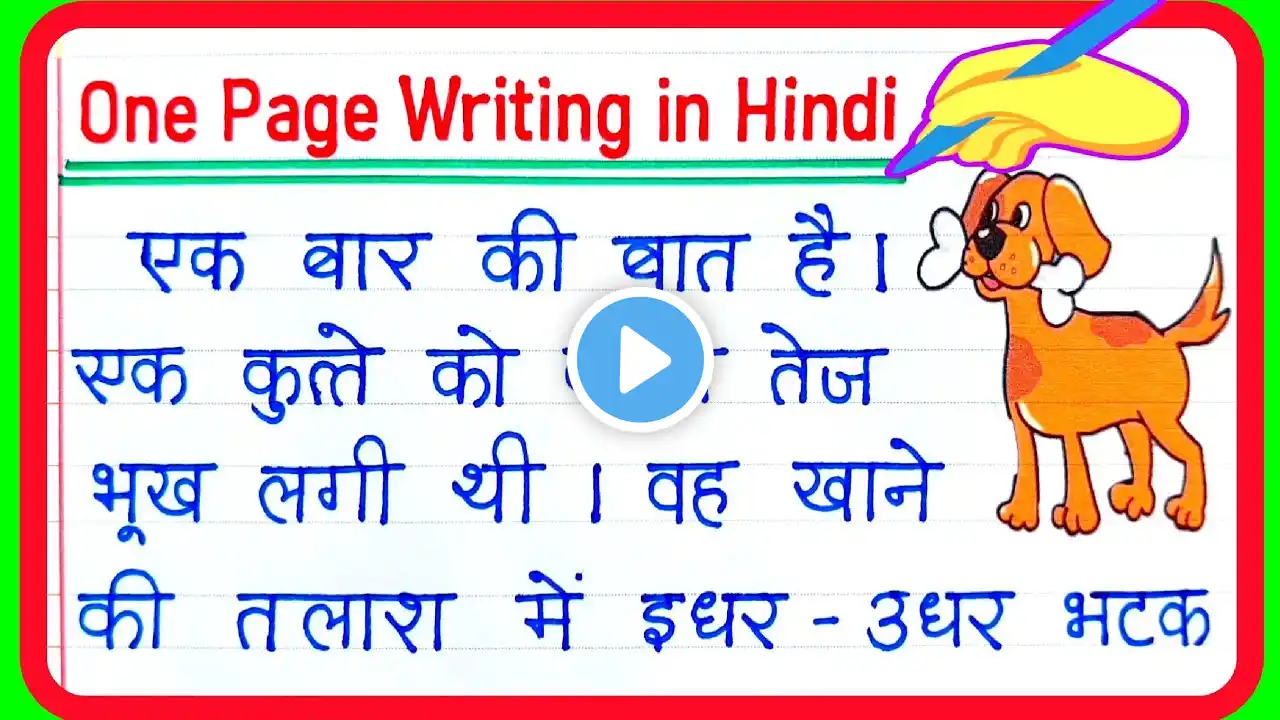 One Page Writing in Hindi
एक बार की बात है।
एक कुत्ते को तेज
भूख लगी थी। वह खाने
की तलाश में इधर-उधर भटक